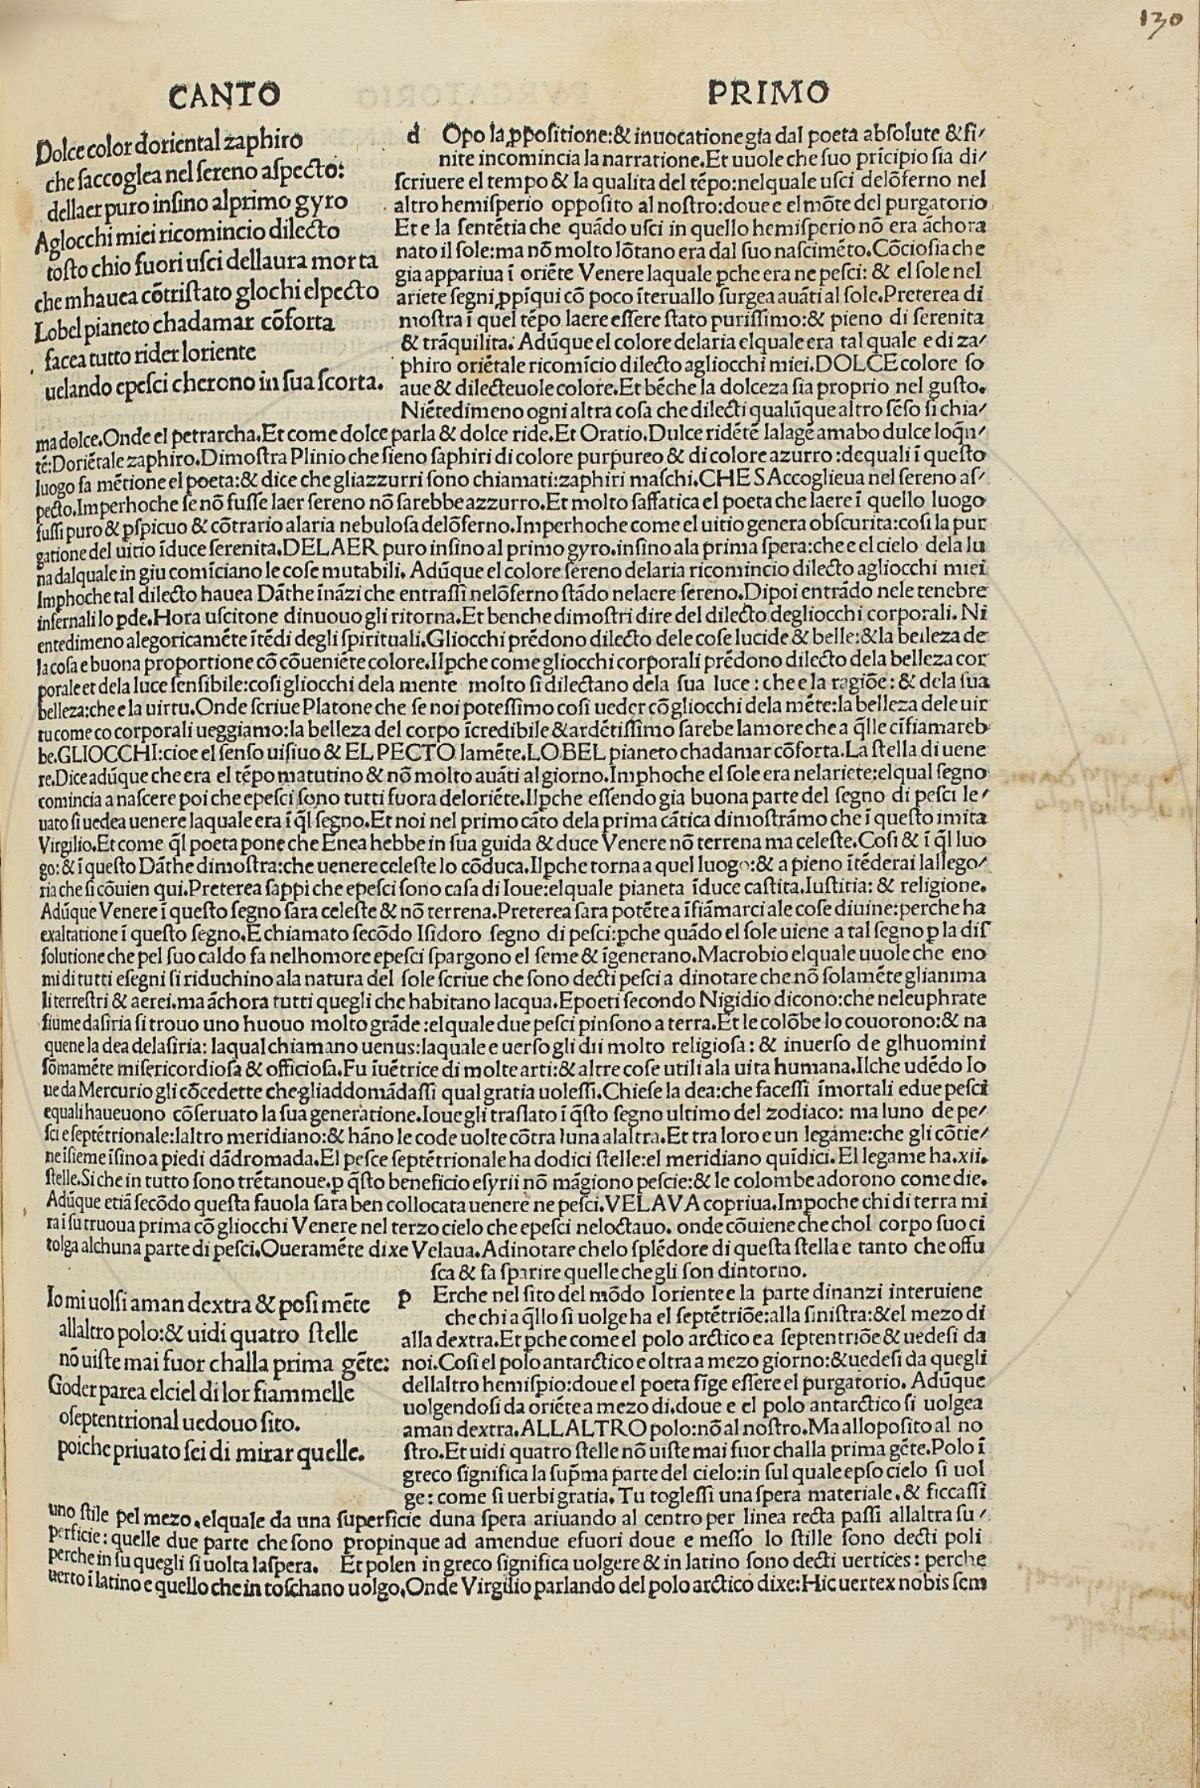 130
CANTO PRIMO
Dolce color doriental zaphiro
che saccoglea nel sereno aspecto:
dellaer puro insino alprimo gyro
Aglocchi miei ricomincio dilecto
tosto chio fuori usci dellaura morta
che mhauea cōtristato glochi elpecto
Lobel pianeto chadamar cōforta
facea tutto rider loriente
uelando epesci cherono in sua scorta.
d Opo la ꝓpositione:& inuocatione gia dal poeta absolute & fi/
nite incomincia la narratione.Et uuole che suo prīcipio sia di/
scriuere el tempo & la qualita del tēpo:nelquale usci delōferno nel
altro hemisperio opposito al nostro:doue e el mōte del purgatorio
Et e la sentētia che quādo usci in quello hemisperio nō era āchora
nato il sole:ma nō molto lōtano era dal suo nascimēto. Cōciosia che
gia appariua ī oriēte Venere laquale pche era ne pesci: & el sole nel
ariete segni ꝓpīqui cō poco īteruallo surgea auāti al sole.Preterea di
mostra ī quel tēpo laere essere stato purissimo:& pieno di serenita
& trāquilita. Adūque el colore delaria elquale era tal quale e di za/
phiro oriētale ricomīcio dilecto agliocchi miei.DOLCE colore so
aue & dilecteuole colore.Et bēche la dolceza sia proprio nel gusto.
Niētedimeno ogni altra cosa che dilecti qualūque altro sēso si chia/
ma dolce.Onde el petrarcha.Et come dolce parla & dolce ride.Et Oratio.Dulce ridētē lalagē amabo dulce loq̄n/
tē:Doriētale zaphiro.Dimostra Plinio che sieno saphiri di colore purpureo & di colore azurro :dequali ī questo
luogo fa mētione el poeta:& dice che gliazzurri sono chiamati:zaphiri maschi.CHE SAccoglieua nel sereno as/
pecto.Imperhoche se nō fusse laer sereno nō sarebbe azzurro.Et molto saffatica el poeta che laere ī quello luogo
fussi puro & pspicuo & cōtrario alaria nebulosa delōferno.Imperhoche come el uitio genera obscurita:cosi la pur
gatione del uitio īduce serenita.DELAER puro insino al primo gyro.insino ala prima spera:che e el cielo dela lu
na dalquale in giu comīciano le cose mutabili. Adūque el colore sereno delaria ricomincio dilecto agliocchi miei
Imphoche tal dilecto hauea Dāthe īnāzi che entrassi nelōferno stādo nelaere sereno.Dipoi entrādo nele tenebre
infernali lo pde.Hora uscitone dinuouo gli ritorna.Et benche dimostri dire del dilecto degliocchi corporali. Ni
entedimeno alegoricamēte ītēdi degli spirituali.Gliocchi prēdono dilecto dele cose lucide & belle:& la belleza de
la cosa e buona proportione cō cōueniēte colore.Ilpche come gliocchi corporali prēdono dilecto dela belleza cor
porale et dela luce sensibile:cosi gliocchi dela mente molto si dilectano dela sua luce: che e la ragiōe: & dela sua
belleza:che e la uirtu.Onde scriue Platone che se noi potessimo cosi ueder cō gliocchi dela mēte:la belleza dele uir
tu come co corporali ueggiamo:la belleza del corpo īcredibile & ardētissimo sarebe lamore che a q̄lle cīfiamareb
be.GLIOCCHI:cioe el senso uisiuo & EL PECTO lamēte.LO BEL pianeto chadamar cōforta.La stella di uene
re.Dice adūque che era el tēpo matutino & nō molto auāti al giorno.Imphoche el sole era nelariete:elqual segno
comincia a nascere poi che epesci sono tutti fuora deloriēte.Ilpche essendo gia buona parte del segno di pesci le/
uato si uedea uenere laquale era ī q̄l segno.Et noi nel primo cāto dela prima cātica dimostrāmo che ī questo imita
Virgilio.Et come q̄l poeta pone che Enea hebbe in sua guida & duce Venere nō terrena ma celeste. Cosi & ī q̄l luo
go:& ī questo Dāthe dimostra:che uenere celeste lo cōduca.Ilpche torna a quel luogo:& a pieno ītēderai lallego/
ria che si cōuien qui.Preterea sappi che epesci sono casa di Ioue:elquale pianeta īduce castita.Iustitia: & religione.
Adūque Venere ī questo segno sara celeste & nō terrena.Preterea sara potēte a īfiāmarci ale cose diuine:perche ha
exaltatione ī questo segno.E chiamato secōdo Isidoro segno di pesci:pche quādo el sole uiene a tal segno p la dis
solutione che pel suo caldo fa nelhomore epesci spargono el seme & īgenerano.Macrobio elquale uuole che eno
mi di tutti esegni si riduchino ala natura del sole scriue che sono decti pesci a dinotare che nō solamēte glianima
li terrestri & aerei.ma āchora tutti quegli che habitano lacqua.Epoeti secondo Nigidio dicono:che neleuphrate
fiume dasiria si trouo uno huouo molto grāde :elquale due pesci pinsono a terra.Et le colōbe lo couorono:& na
quene la dea delasiria: laqual chiamano uenus:laquale e uerso gli dii molto religiosa: & inuerso de glhuomini
sōmamēte misericordiosa & officiosa.Fu īuētrice di molte arti:& altre cose utili ala uita humana.Ilche udēdo Io
ue da Mercurio gli cōcedette che gliaddomādassi qual gratia uolessi.Chiese la dea:che facessi īmortali edue pesci
equali haueuono cōseruato la sua generatione.Ioue gli traslato ī q̄sto segno ultimo del zodiaco: ma luno de pe/
sci e septētrionale:laltro meridiano:& hāno le code uolte cōtra luna alaltra.Et tra loro e un legame:che gli cōtie/
ne īsieme īsino a piedi dādromada.El pesce septētrionale ha dodici stelle:el meridiano quīdici.El legame ha.xii.
stelle.Si che in tutto sono trētanoue.p q̄sto beneficio esyrii nō māgiono pescie:& le colombe adorono come die.
Adūque etiā secōdo questa fauola sara ben collocata uenere ne pesci.VELAVA copriua.Impoche chi di terra mi
ra ī su truoua prima cō gliocchi Venere nel terzo cielo che epesci neloctauo. onde cōuiene che chol corpo suo ci
tolga alchuna parte di pesci.Oueramēte dixe Velaua.Adinotare chelo splēdore di questa stella e tanto che offu
sca & fa sparire quelle che gli son dintorno.
Io mi uolsi aman dextra & posi mēte
allaltro polo:& uidi quatro stelle
nō uiste mai fuor challa prima gēte:
Goder parea elciel di lor fiammelle
oseptentrional uedouo sito.
poiche priuato sei di mirar quelle.
p Erche nel sito del mōdo loriente e la parte dinanzi interuiene
che chi a q̄llo si uolge ha el septētriōe:alla sinistra:& el mezo di
alla dextra.Et pche come el polo arctico e a septentriōe & uedesi da
noi.Cosi el polo antarctico e oltra a mezo giorno:& uedesi da quegli
dellaltro hemispio:doue el poeta fīge essere el purgatorio. Adūque
uolgendosi da oriēte a mezo di.doue e el polo antarctico si uolgea
a man dextra.ALLALTRO polo:nō al nostro.Ma alloposito al no
stro.Et uidi quatro stelle nō uiste mai fuor challa prima gēte.Polo ī
greco significa la supma parte del cielo:in sul quale epso cielo si uol
ge: come si uerbi gratia. Tu toglessi una spera materiale. & ficcassi
uno stile pel mezo.elquale da una superficie duna spera ariuando al centro per linea recta passi allaltra su/
perficie: quelle due parte che sono propinque ad amendue efuori doue e messo lo stille sono decti poli
perche in su quegli si uolta la spera. Et polen in greco significa uolgere & in latino sono decti uertices: perche
uerto ī latino e quello che in toschano uolgo.Onde Virgilio parlando del polo arctico dixe:Hic uertex nobis sem